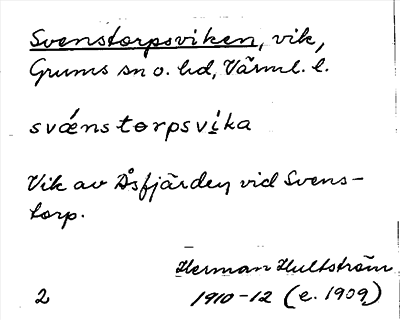 Svenstorpsviken, vik,
Grums sn o. hd, Värml. l.
svǽnstorpsvi̍ka
Vik av Åsfjärden vid Svens-
torp.
Herman Hultström
2 1910-12 (e. 1909)